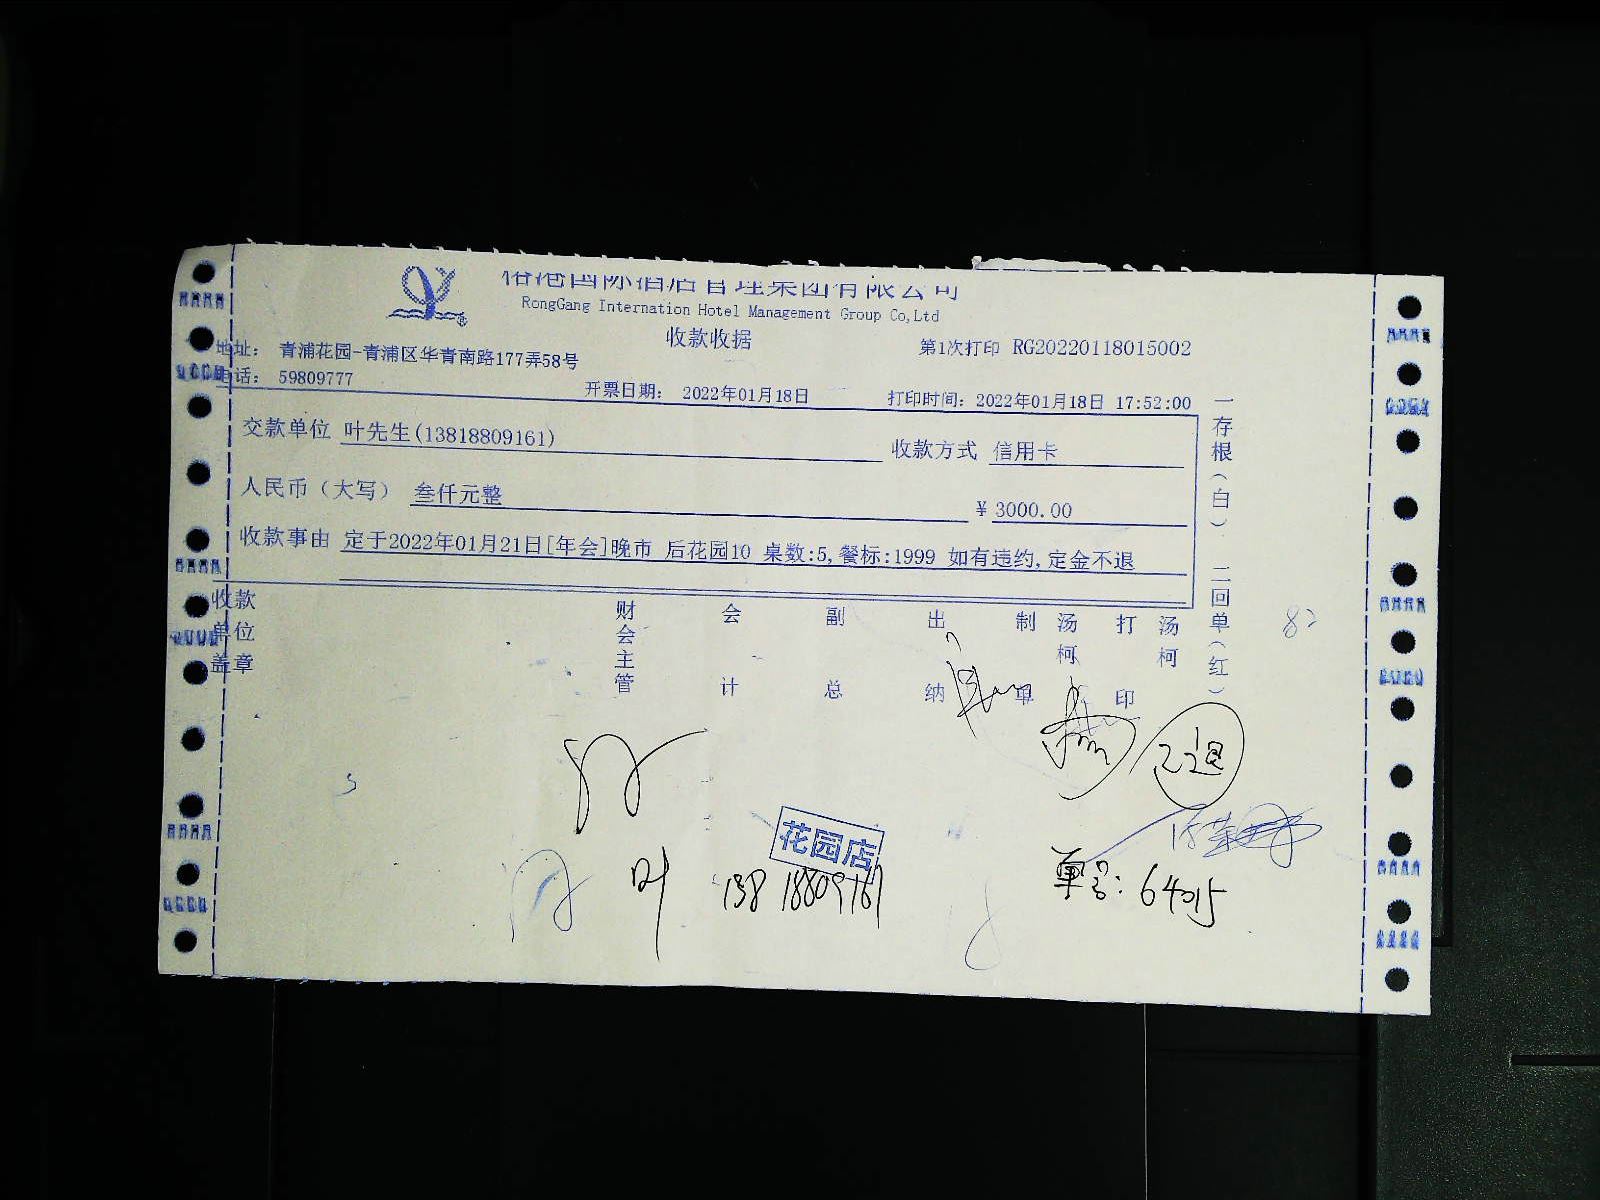 港国际酒店管理集团有限公司
RongGang Internation Hotel Management Group Co,Ltd
收款收据
第1次打印 RG20220118015002
地址： 青浦花园-青浦区华青南路177弄58号
电话： 59809777
开票日期： 2022年01月18日
打印时间：2022年01月18日 17:52:00
交款单位 叶先生(13818809161)
收款方式 信用卡
人民币（大写） 叁仟元整
¥ 3000.00
收款事由 定于2022年01月21日[年会]晚市 后花园10 桌数:5,餐标:1999 如有违约,定金不退
一存根（白） 二回单（红）
收款单位盖章
财会主管
会计
副总
出纳
制单
汤柯
打印
汤柯
已退
花园店
叶 13818809161
单号：64015